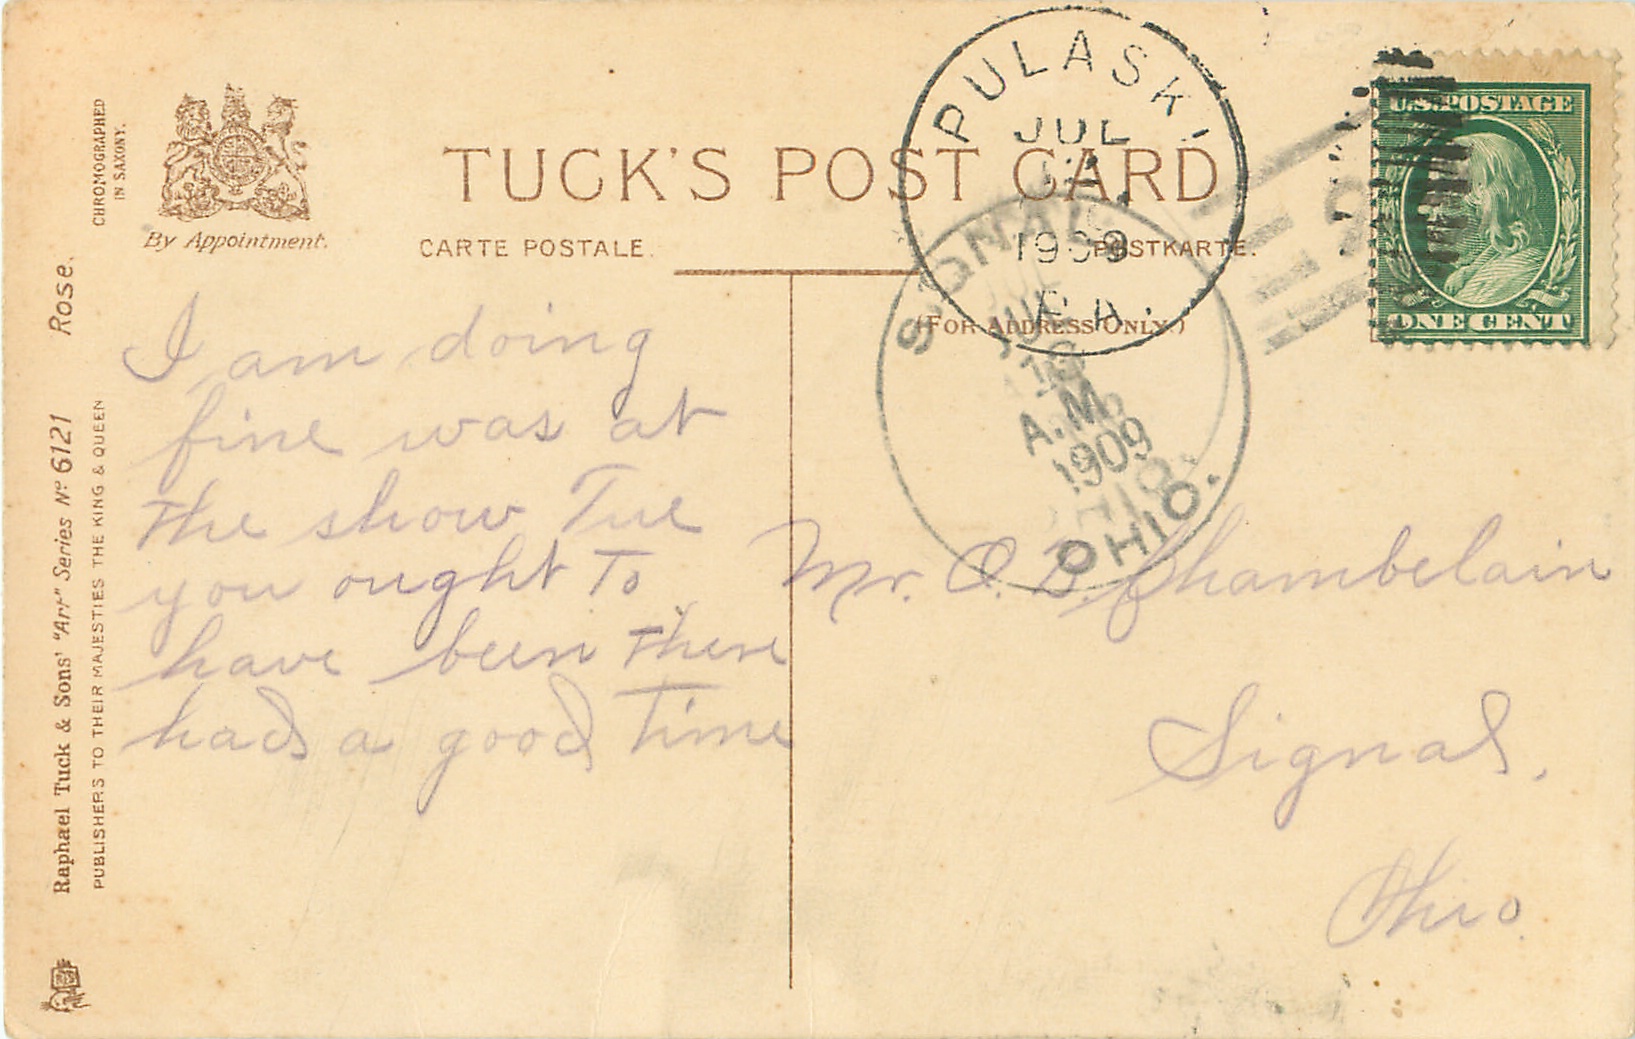 CHROMOGRAPHED
IN SAXONY.
By Appointment.
TUCK'S POST CARD
CARTE POSTALE.
POSTKARTE.
(FOR ADDRESS ONLY.)
PULASKI
JUL
1909
PA.
SIGNAL
JUL
A.M.
1909
OHIO.
U.S. POSTAGE
ONE CENT
I am doing
fine was at
the show Tue
you ought To
have been There
had a good Time
Mr. O. B. Chambelain
Signal.
Ohio
Rose.
Raphael Tuck & Sons' "Art" Series No 6121
PUBLISHERS TO THEIR MAJESTIES THE KING & QUEEN